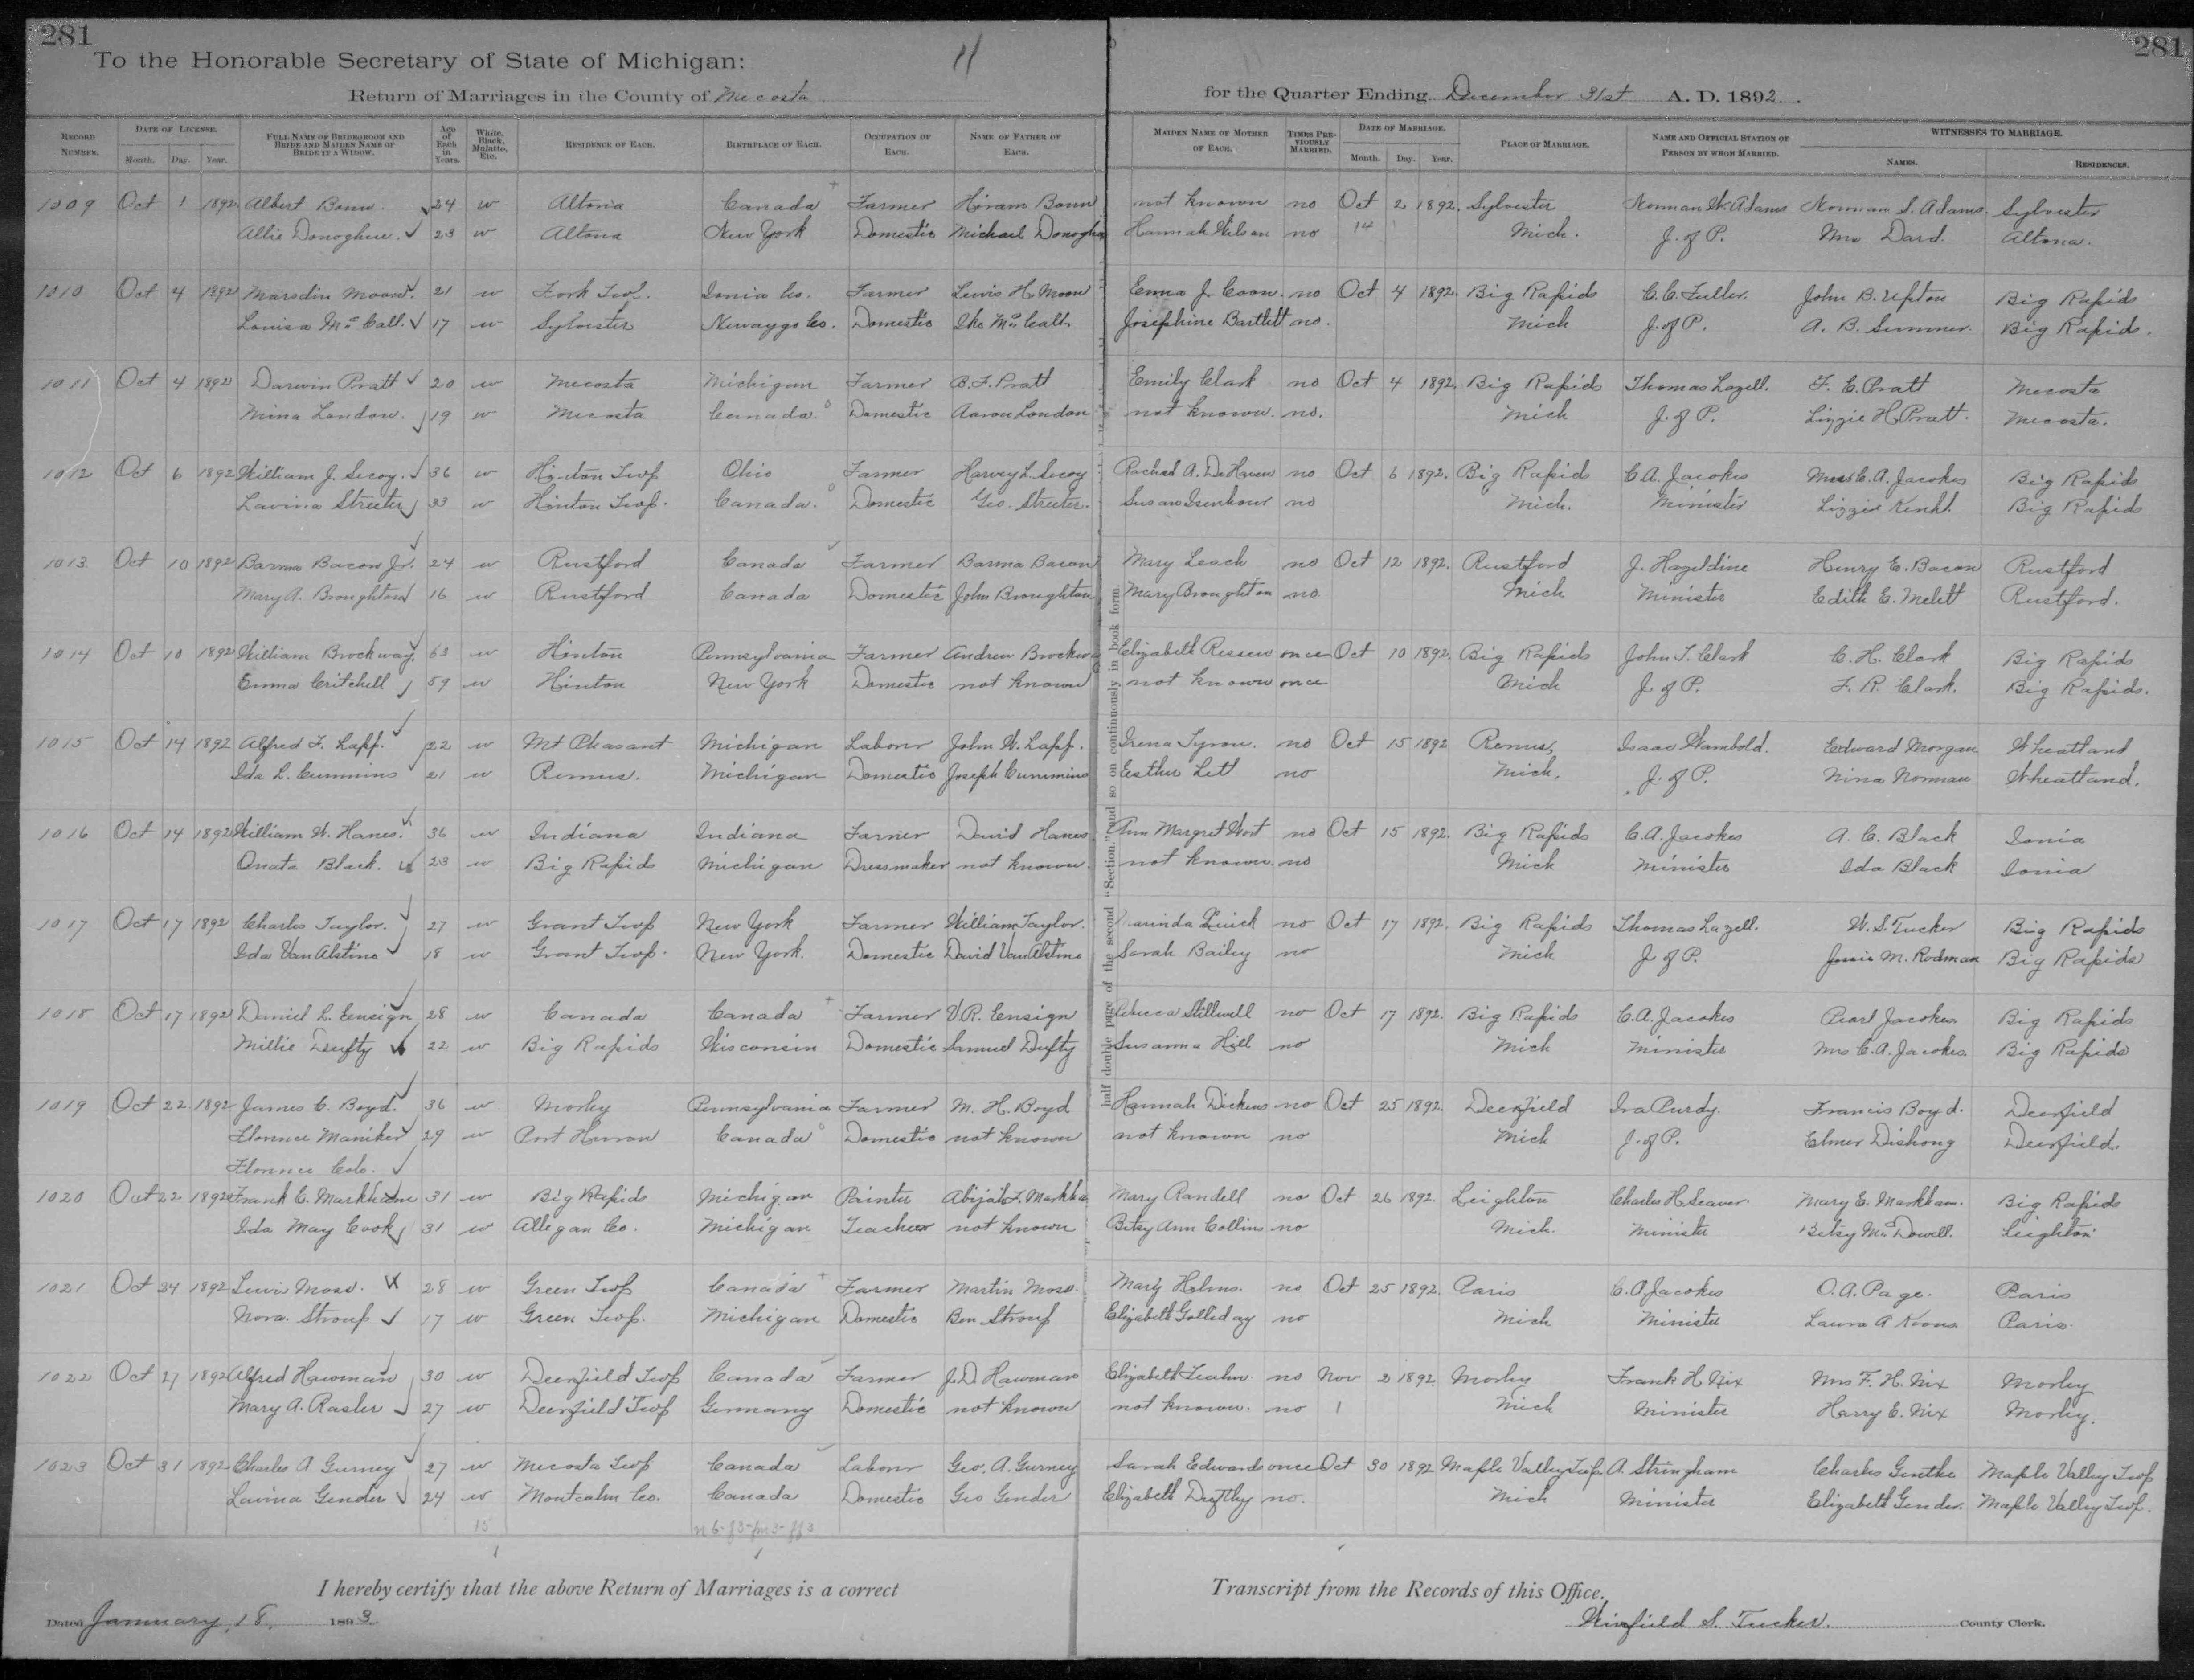 281
281
To the Honorable Secretary of State of Michigan:
11
Return of Marriages in the County of Mecosta
for the Quarter Ending December 31st A. D. 1892.
RECORD NUMBER. DATE OF LICENSE. Month. Day. Year. FULL NAME OF BRIDEGROOM AND BRIDE AND MAIDEN NAME OF BRIDE IF A WIDOW. Age of Each in Years. White, Black, Mulatto, Etc. RESIDENCE OF EACH. BIRTHPLACE OF EACH. OCCUPATION OF EACH. NAME OF FATHER OF EACH. MAIDEN NAME OF MOTHER OF EACH. TIMES PREVIOUSLY MARRIED. DATE OF MARRIAGE. Month. Day. Year. PLACE OF MARRIAGE. NAME AND OFFICIAL STATION OF PERSON BY WHOM MARRIED. WITNESSES TO MARRIAGE. NAMES. RESIDENCES.
1009 Oct 1 1892 Albert Bonn. 24 w Altona Canada Farmer Hiram Bonn not known no Oct 2 1892. Sylvester Norman W. Adams Norman S. Adams. Sylvester
Allie Donoghue. 23 w Altona New York Domestic Michael Donoghue Hannah Wilson no 14 Mich. J. of P. Mrs Dard. Altona.
1010 Oct 4 1892 Marsdin Moon. 21 w Fork Twp. Ionia Co. Farmer Lewis H. Moon Emma J. Coon. no Oct 4 1892. Big Rapids C. C. Fuller. John B. Upton Big Rapids
Louisa McCall. 17 w Sylvester Newaygo Co. Domestic Ike McCall. Josephine Bartlett no. Mich J. of P. A. B. Sumner. Big Rapids.
1011 Oct 4 1892 Darwin Pratt 20 w Mecosta Michigan Farmer B. F. Pratt Emily Clark no Oct 4 1892. Big Rapids Thomas Lazell. F. E. Pratt Mecosta
Mina Landon. 19 w Mecosta Canada. Domestic Aaron London not known. no. Mich J. of P. Lizzie H. Pratt. Mecosta.
1012 Oct 6 1892 William J. Secoy. 36 w Hinton Twp Ohio Farmer Harvey L. Secoy Rachel A. DeHaven no Oct 6 1892. Big Rapids C. A. Jacokes Mrs C. A. Jacokes Big Rapids
Lavina Streeter 33 w Hinton Twp. Canada. Domestic Geo. Streeter. Susan Isenhour no Mich. Minister Lizzie Big Rapids
1013 Oct 10 1892 Barna Bacon Jr. 24 w Rustford Canada Farmer Barna Bacon Mary Leach no Oct 12 1892. Rustford J. Hazeldine Henry E. Bacon Rustford
Mary A. Broughton 16 w Rustford Canada Domestic John Broughton Mary Broughton no Mich Minister Edith E. Rustford.
1014 Oct 10 1892 William Brockway. 63 w Hinton Pennsylvania Farmer Andrew Brockway Elizabeth once Oct 10 1892. Big Rapids John T. Clark C. H. Clark Big Rapids
Emma Critchell 59 w Hinton New York Domestic not known not known once Mich J. of P. F. R. Clark. Big Rapids.
1015 Oct 14 1892 Alfred F. Lapp. 22 w Mt Pleasant Michigan Labour John W. Lapp. Irena Tyron. no Oct 15 1892 Remus, Isaac Wambold. Edward Morgan Wheatland
Ida L. Cummins 21 w Remus. Michigan Domestic Joseph Cummins Eesther Lett no Mich. J. of P. Nina Norman Wheatland.
1016 Oct 14 1892 William W. Hanes. 36 w Indiana Indiana Farmer David Hanes Ann Margret Wort no Oct 15 1892. Big Rapids C. A. Jacokes A. C. Black Ionia
Onata Black. 23 w Big Rapids Michigan Dressmaker not known. not known. no Mich Minister Ida Black Ionia
1017 Oct 17 1892 Charles Taylor. 27 w Grant Twp New York Farmer William Taylor. Quick no Oct 17 1892. Big Rapids Thomas Lazell. W. S. Tucker Big Rapids
Ida Van Alstine 18 w Grant Twp. New York. Domestic David VanAlstine Sarah Bailey no Mich J of P. Jessie M. Rodman Big Rapids
1018 Oct 17 1892 Daniel L. Eensign 28 w Canada Canada Farmer V. R. Ensign Rebecca Stillwell no Oct 17 1892. Big Rapids C. A. Jacokes Pearl Jacokes Big Rapids
Millie Dufty 22 w Big Rapids Wisconsin Domestic Samuel Dufty Susanna Hill no Mich Minister Mrs C. A. Jacokes. Big Rapids
1019 Oct 22 1892 James C. Boyd. 36 w Morley Pennsylvania Farmer M. H. Boyd Hannah Dickens no Oct 25 1892. Deerfield Ira Purdy. Francis Boyd. Deerfield
Florence Maniker 29 w Port Hurron Canada Domestic not known not known no Mich J. of P. Elmer Dishong Deerfield.
Florence Cole.
1020 Oct 22 1892 Frank E. Markham 31 w Big Rapids Michigan Painter Abijah F. Markham Mary Randell no Oct 26 1892. Leighton Charles H Seaver. Mary E. Markham. Big Rapids
Ida May Cook 31 w Allegan Co. Michigan Teacher not known Betsy Ann Collins no Mich. Minister Betsy McDowell. Leighton
1021 Oct 24 1892 Lewis Moss. 28 w Green Twp Canada Farmer Martin Moss. Mary Helms. no Oct 25 1892. Paris C. A Jacokes O. A. Page. Paris
Nora. Stroup 17 w Green Twp. Michigan Domestic Ben Stroup Elizabeth Golliday no Mich Minister Laura A Koons Paris.
1022 Oct 27 1892 Alfred Hawman 30 w Deerfield Twp Canada Farmer J. D. Hawman Elizabeth no Nov 2 1892. Morley Frank H Nix Mrs F. H. Nix Morley
Mary A. Rasler 27 w Deerfield Twp Germany Domestic not known not known. no 1 Mich Minister Harry E. Nix Morley.
1023 Oct 31 1892 Charles A Gurney 27 w Mecosta Twp Canada Labour Geo. A. Gurney Sarah Edwards once Oct 30 1892 Maple Valley Twp A. Stringham Charles Gentke Maple Valley Twp
Lavina Gender 24 w Montcalm Co. Canada Domestic Geo Gender Elizabeth no. Mich Minister Elizabeth Gender. Maple Valley Twp.
15
half double page of the second "Section," and so on continuously in book form.
I hereby certify that the above Return of Marriages is a correct Transcript from the Records of this Office.
Dated January, 18, 1893.
Winfield S. Tucker. County Clerk.